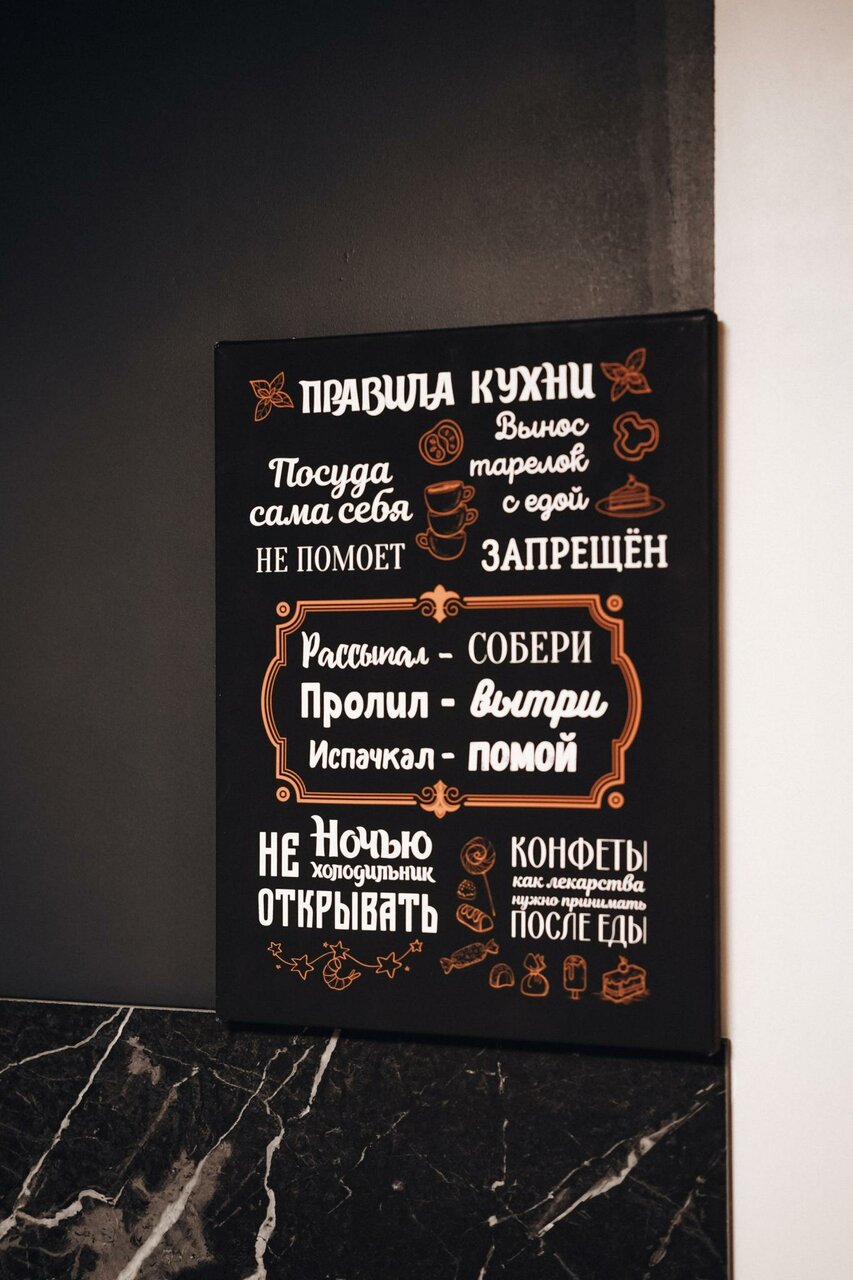 ПРАВИЛА КУХНИ
Посуда
сама себя
НЕ ПОМОЕТ
Вынос
тарелок
с едой
ЗАПРЕЩЁН
Рассыпал - СОБЕРИ
Пролил - вытри
Испачкал - ПОМОЙ
НЕ Ночью
холодильник
ОТКРЫВАТЬ
КОНФЕТЫ
как лекарства
нужно принимать
ПОСЛЕ ЕДЫ